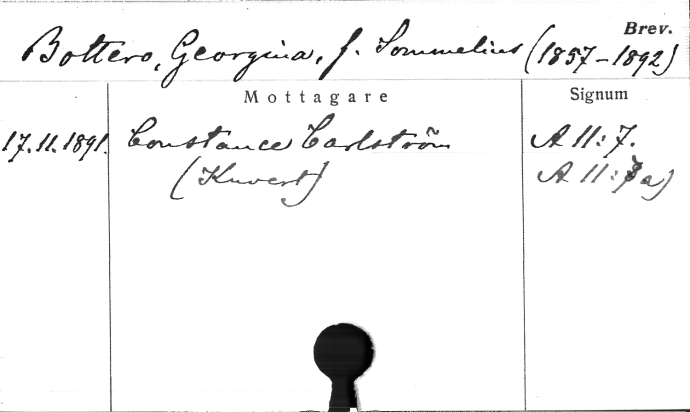 Brev.
Bottero, Georgina, f. Sommelius (1857-1892)
Mottagare Signum
17.11.1891. Constance Carlström A II:7.
(Kuvert) A II:7 a)